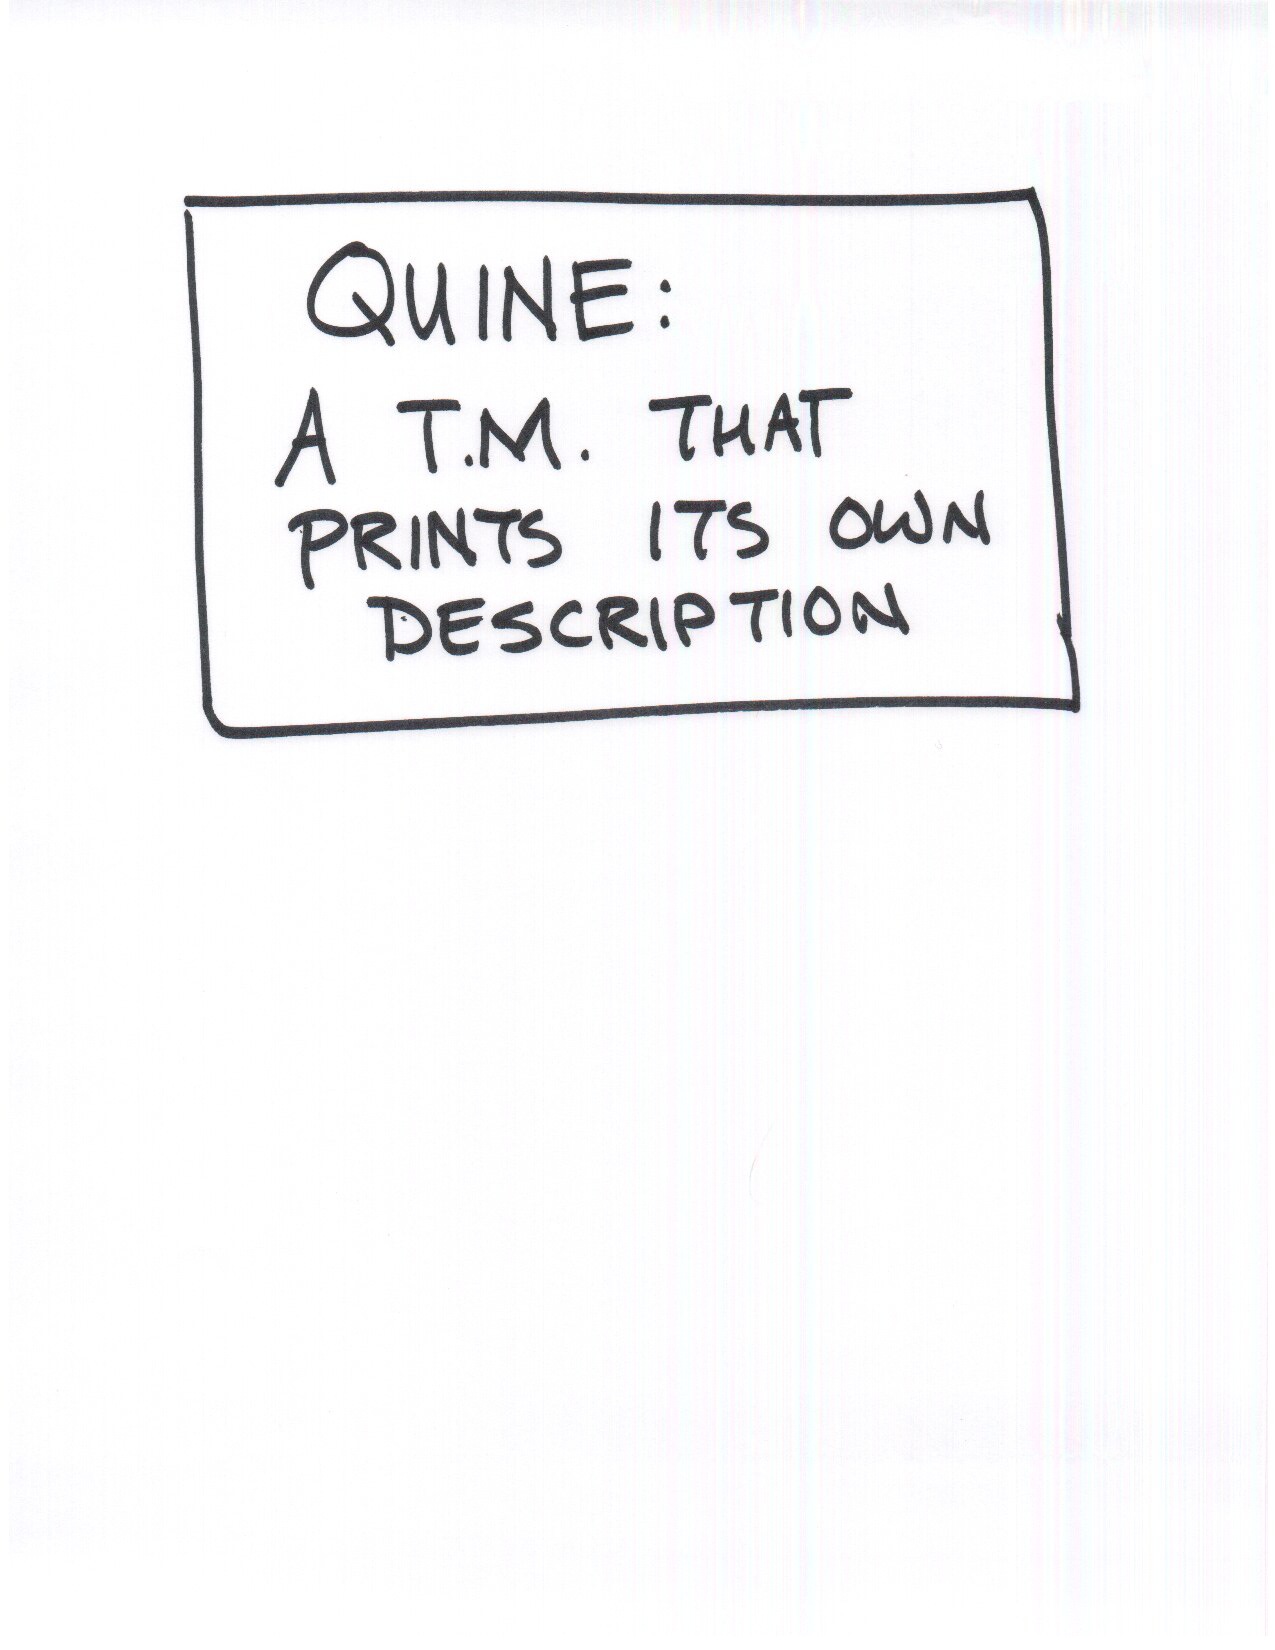 QUINE:
A T.M. THAT
PRINTS ITS OWN
DESCRIPTION